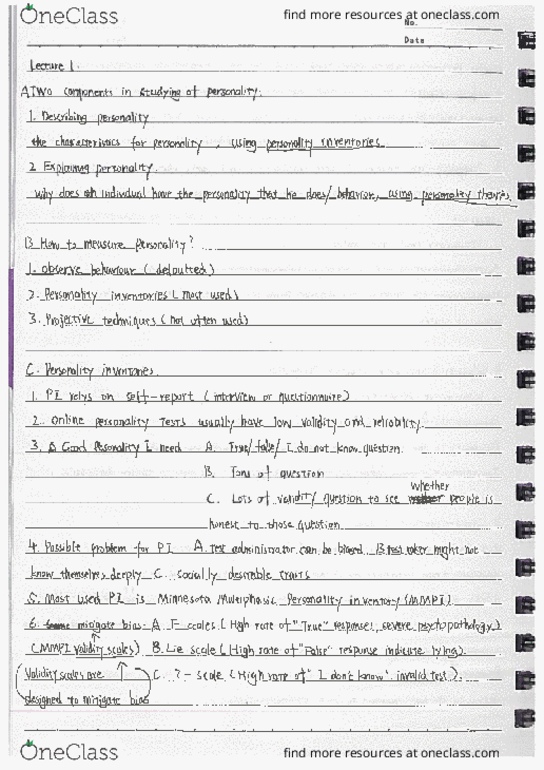 OneClass find more resources at oneclass.com
No.
Date
Lecture 1.
A Two components in studying of personality:
1. Describing personality
the characteristics for personality, using personality inventories.
2 Explaining personality.
why does an individual have the personality that he does/behavior, using personality theories.
B How to measure Personality?
1. observe behaviour (defaulted)
2. Personality inventories (most used)
3. Projective techniques (not often used)
C. Personality inventories.
1. PI relys on self-report (interview or questionnaire)
2. Online personality Tests usually have low validity and reliability.
3. A Good Pesonality I need A. True/false/ I do not know question.
B. Tons of question
whether
C. Lots of validity question to see people is
honest to those question
4. Possible problem for PI A. test administrator can be biased B. test taker might not
know themselves deeply C. socially desirable traits
5. Most used PI is Minnesota Multiphasic Personality inventory (MMPI)
6. mitigate bias. A F scales (High rate of "True" responses, severe psychopathology)
(MMPI validity scales) B. Lie scale (High rate of "False" response indicate lying).
Validity scales are C. ?- scale (High rate of "I don't know" invalid test).
designed to mitigate bias
OneClass find more resources at oneclass.com